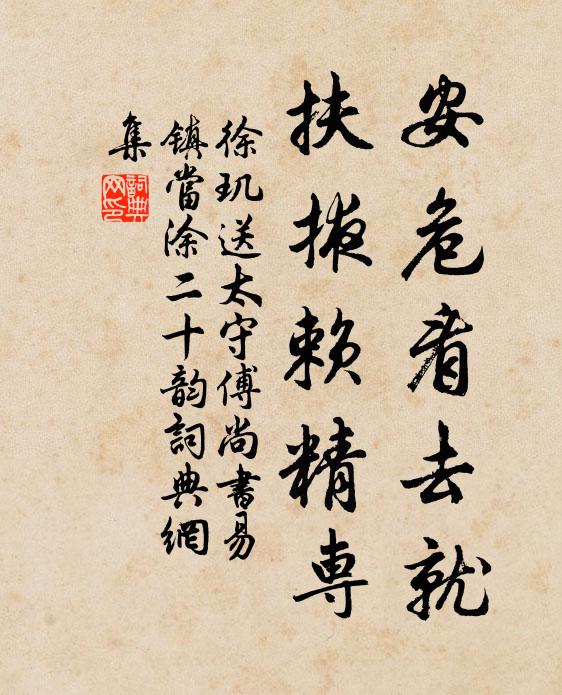 安危看去就
扶掖賴精専
徐玑送太守傅尚書易
镇當涂二十韵詞典網
集
詞典
网印